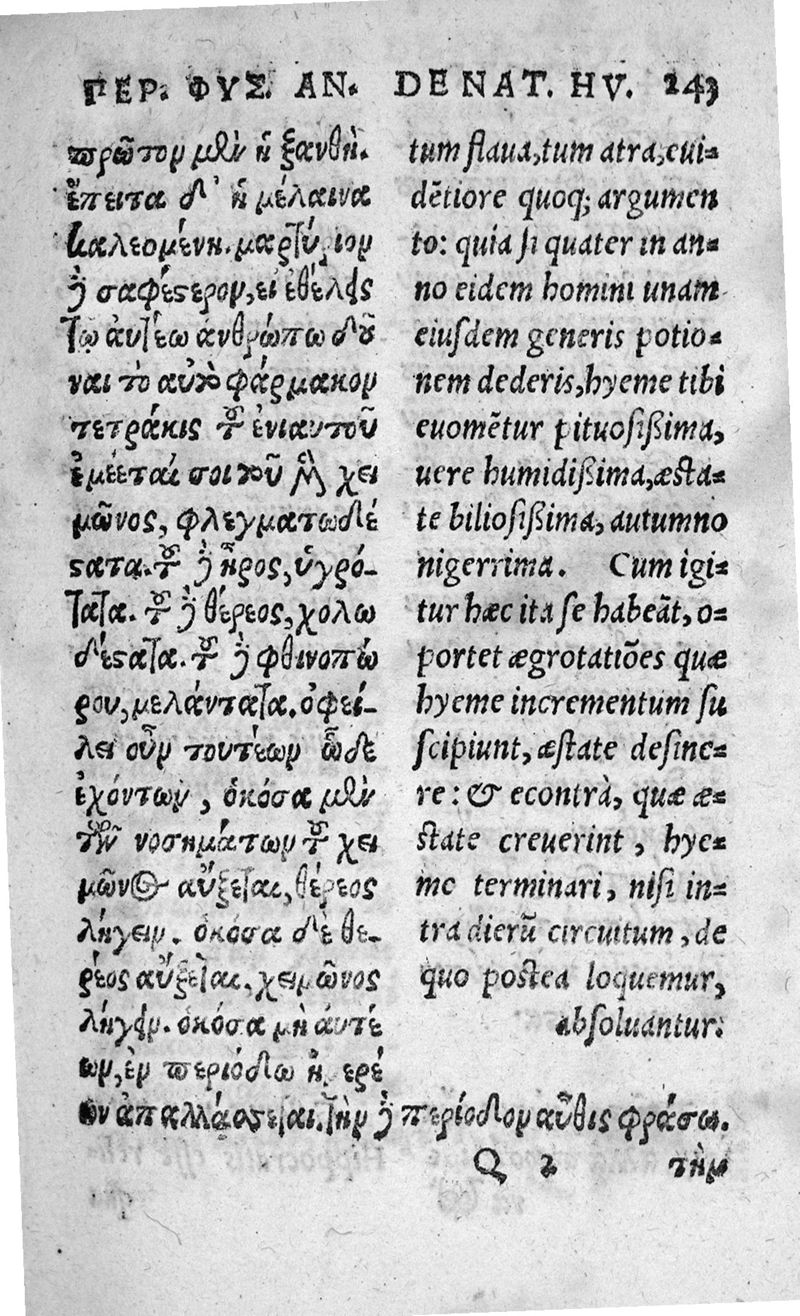 ΠΕΡ. ΦΥΣ. ΑΝ. DE NAT. HV. 243
πρῶτον μὲν ἡ ξανθὴ.
ἔπειτα δ' ἡ μέλαινα
καλεομένη. μαρτύριον
δὲ σαφέστερον, εἰ ἐθέλεις
τῷ αὐτέω ἀνθρώπω δοῦ
ναι τὸ αὐτὸ φάρμακον
τετράκις τοῦ ἐνιαυτοῦ
ἐμέεται σοι τοῦ μὲν χει
μῶνος, φλεγματωδέ
στατα. τοῦ δὲ ἦρος, ὑγρό-
τατα. τοῦ δὲ θέρεος, χολω
δέστατα. τοῦ δὲ φθινοπώ
ρου, μελάντατα. ὀφεί-
λει οὖν τουτέων ὧδε
ἐχόντων, ὁκόσα μὲν
τῶν νοσημάτων τοῦ χει
μῶνος αὔξεται, θέρεος
λήγειν. ὁκόσα δὲ θέ-
ρεος αὔξεται, χειμῶνος
λήγειν. ὁκόσα μὴ αὐτέ
ων, ἐν περιόδω ἡμερέ
ων ἀπαλλάσσεται. τὴν δὲ περίοδον αὖθις φράσω.
tum flaua, tum atra, eui-
dētiore quoq; argumen
to: quia si quater in an-
no eidem homini unam
eiusdem generis potio-
nem dederis, hyeme tibi
euomētur pituosissima,
uere humidissima, æsta-
te biliosissima, autumno
nigerrima. Cum igi-
tur hæc ita se habeāt, o-
portet ægrotatiōes quæ
hyeme incrementum su
scipiunt, æstate desine-
re: & econtrà, quæ æ-
state creuerint, hye-
me terminari, nisi in-
tra dierū circuitum, de
quo postea loquemur,
absoluantur.
Q 2 τὴν